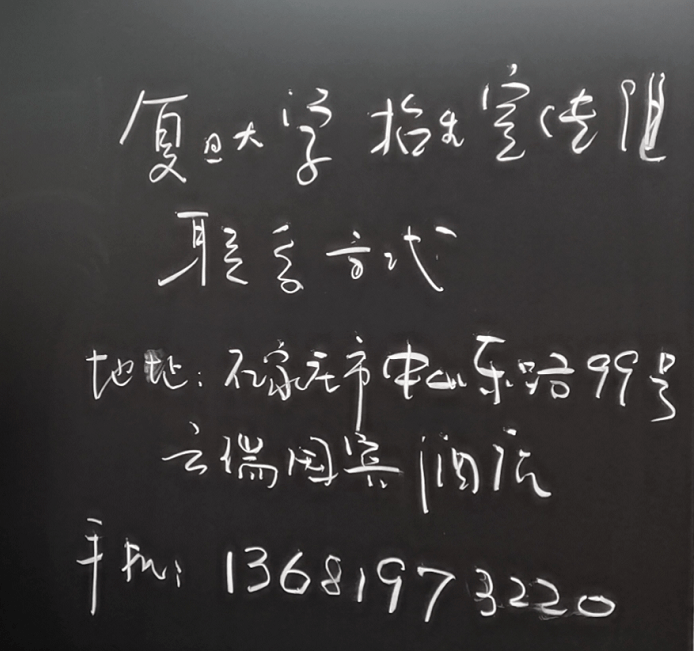 复旦大学招生宣传组
联系方式
地址:石家庄市中山东路99号
云瑞国宾酒店
手机:13681973220